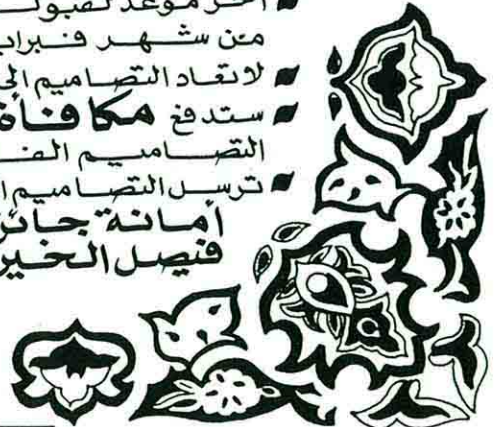 آخر موعد لقبول
من شهر فبراير
لا تعاد التصاميم إلى
ستدفع مكافأة
التصاميم الف
ترسل التصاميم ا
أمانة جائز
فيصل الخير